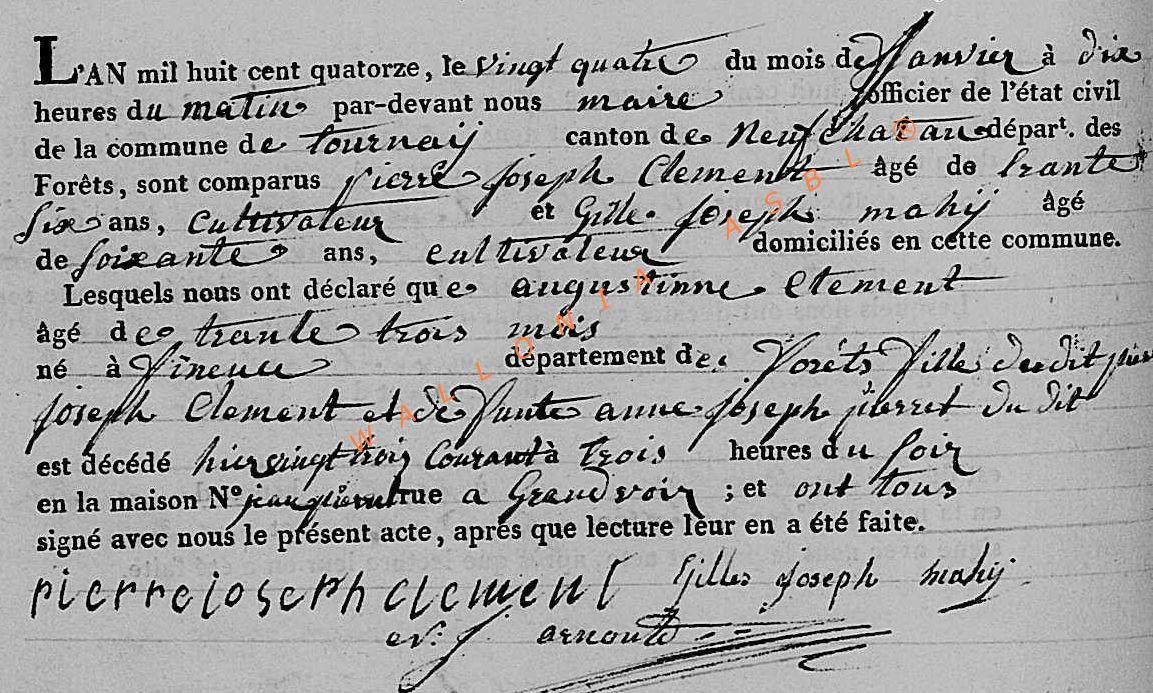 L'AN mil huit cent quatorze, le vingt quatre du mois de Janvier à dix
heures du matin par-devant nous maire officier de l'état civil
de la commune de tournaij canton de Neufchateau départ. des
Forêts, sont comparus pierre joseph Clement âgé de trante
six ans, Cultivateur et Gille joseph mahij âgé
de soixante ans, cultivateur domiciliés en cette commune.
Lesquels nous ont déclaré que augustinne Clement
âgé de trante trois mois
né à département de Forêts fille du dit pierre
joseph Clement et de funte anne joseph pierret du dit
est décédé hier vingt trois Courant à trois heures du soir
en la maison N° rue a Grandvoir ; et ont tous
signé avec nous le présent acte, après que lecture leur en a été faite.
pierre joseph clement Gilles joseph mahij
arnould
WALLONIA ASBL